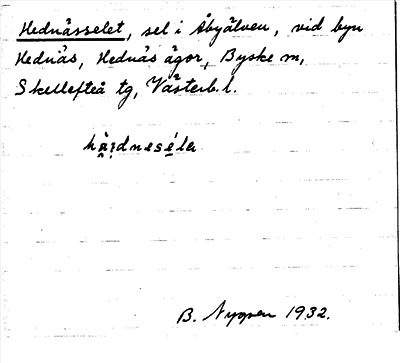 Hednässelet, sel i Åbyälven, vid byn
Hednäs, Hednäs ägor, Byske sn,
Skellefteå tg, Västerb. l.
B. Nygren 1932.